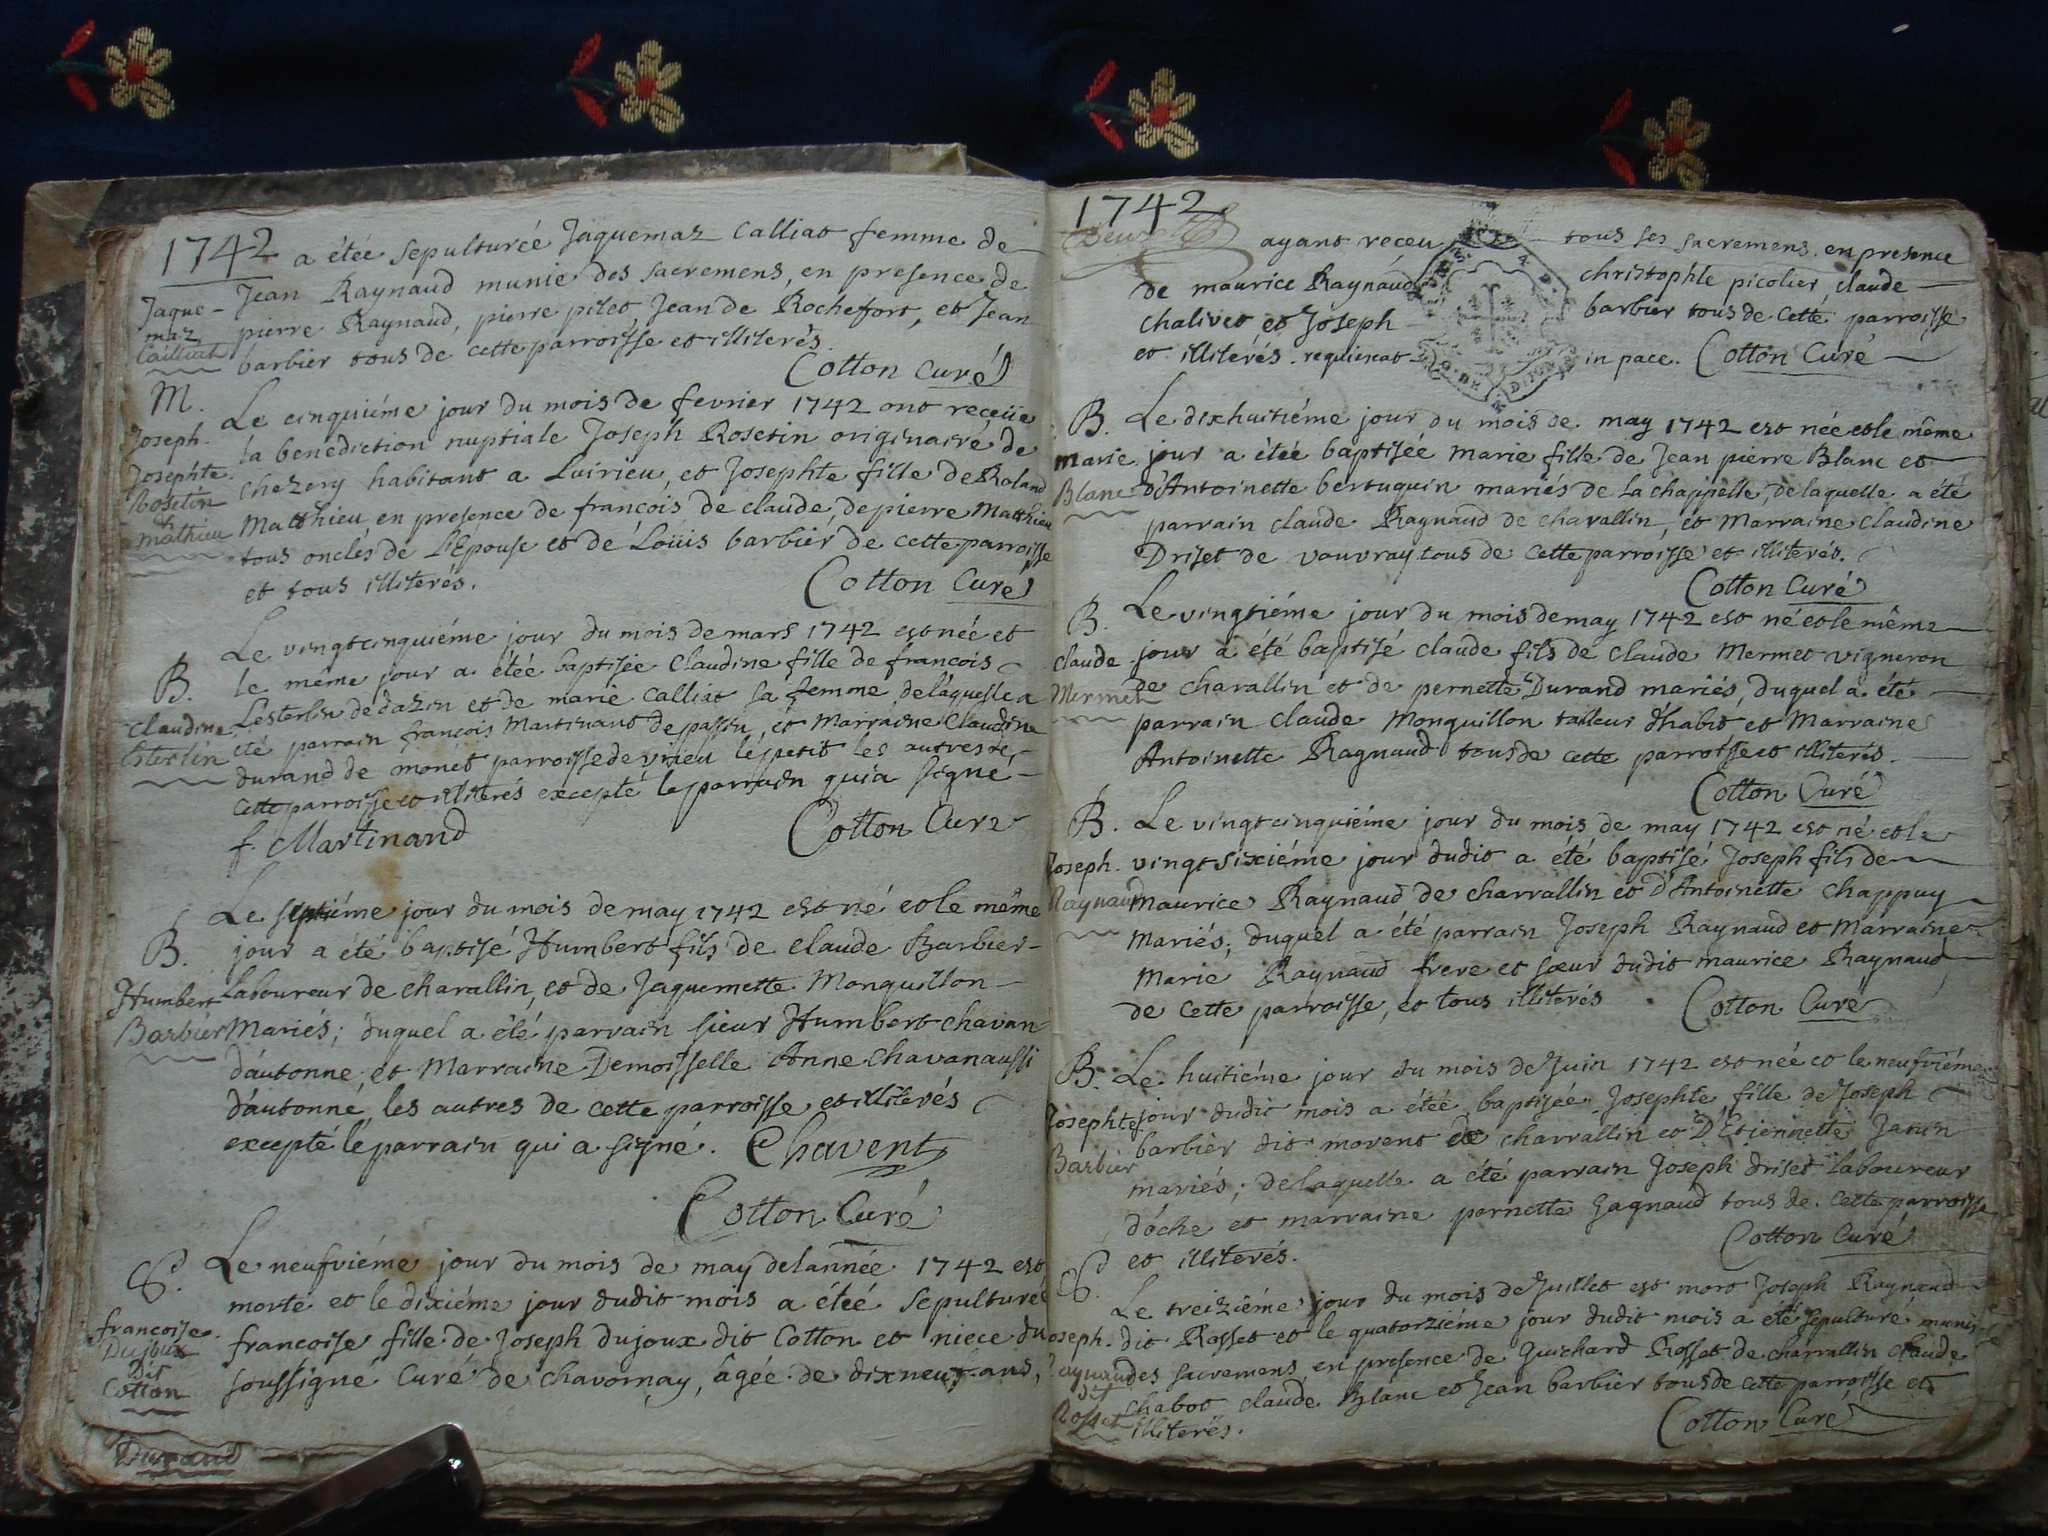 1742
a étée sepulturée Jaquemaz Calliat femme de
Jean Raynaud munie des sacremens, en presence de
pierre Raynaud, pierre pilet, Jean de Rochefort, et Jean
barbier tous de cette parroisse et illiterés.
Jaque-
maz
Cailliat
Cotton Curé
M.
Joseph.
Josephte.
Rosetin
Mathieu
Le cinquiéme jour du mois de fevrier 1742 ont receüe
la benediction nuptiale Joseph Rosetin originaire de
chezery habitant a Luirieu, et Josephte fille de Roland
Matthieu, en presence de francois de claude, de pierre Matthieu
tous oncles de L'Epouse et de Loüis barbier de cette parroisse
et tous illiterés.
Cotton Curé
B.
Claudine
Lesterlin
Le vingtcinquiéme jour du mois de mars 1742 est née et
le même jour a étée baptisée Claudine fille de francois
Lesterlin de dazin et de marie Calliat sa femme, de laquelle a
été parrain francois Martinant de passin, et Marraine Claudine
durand de monet parroisse de vrieu le petit les autres de
cette parroisse et illiterés excepté le parrain qui a signé
f. Martinand
Cotton Curé
B.
Humbert
Barbier
Le septiéme jour du mois de may 1742 est né et le même
jour a été baptisé Humbert fils de claude Barbier
Laboureur de charallin, et de Jaquemette Monguillon
Mariés; duquel a été parrain sieur Humbert chavan
d'autonne, et Marraine Demoisselle Anne chavan aussi
d'autonne, les autres de cette parroisse et illiterés
excepté le parrain qui a signé. Chavent
Cotton Curé
S.
francoise.
Dujoux
Dit
Cotton
Le neufviéme jour du mois de may de lannée 1742 est
morte et le dixiéme jour dudit mois a étée sepulturée
francoise fille de Joseph dujoux dit Cotton et niece du
soussigné Curé de chavornay, âgée de dixneuf ans,
Durand
1742
ayant receu tous ses sacremens, en presence
de maurice Raynaud christophle picolier, claude
chalivet et Joseph barbier tous de cette parroisse
et illiterés. requiescat in pace. Cotton Curé
B.
Marie
Blanc
Le dixhuitiéme jour du mois de may 1742 est née et le même
jour a étée baptisée Marie fille de Jean pierre Blanc et
d'Antoinette bertuquin mariés de La chappelle, de laquelle a été
parrain claude Raynaud de charallin, et Marraine Claudine
Driset de vauvray tous de cette parroisse et illiterés.
Cotton Curé
B.
Claude
Mermet
Le vingtiéme jour du mois de may 1742 est né et le même
jour a été baptisé claude fils de claude Mermet vigneron
de charallin et de pernette Durand mariés, duquel a été
parrain claude Monguillon tailleur d'habit et Marraine
Antoinette Raynaud tous de cette parroisse et illiterés.
Cotton Curé
B.
Joseph.
Raynaud
Le vingtcinquiéme jour du mois de may 1742 est né et le
vingt sixiéme jour dudit a été baptisé Joseph fils de
Maurice Raynaud de charrallin et d'Antoinette Chappuy
Mariés; duquel a été parrain Joseph Raynaud et Marraine
Marie Raynaud frere et sœur dudit maurice Raynaud
de cette parroisse, et tous illiterés. Cotton Curé
B.
Josephte
Barbier
Le huitiéme jour du mois de Juin 1742 est née et le neufviéme
jour dudit mois a étée baptisée Josephte fille de Joseph
barbier dit morent de charrallin et D'Etiennette Janin
mariés; de laquelle a été parrain Joseph driset laboureur
d'óche et marraine pernette Gagnaud tous de cette parroisse
et illiterés.
Cotton Curé
S.
Joseph.
Raynaud
dit
Rosset
Le treiziéme jour du mois de Juillet est mort Joseph Raynaud
dit Rosset et le quatorziéme jour dudit mois a été sepulturé muni
des sacremens, en presence de Guichard Rosset de charrallin claude
chabot claude Blanc et Jean barbier tous de cette parroisse et
illiterés.
Cotton Curé